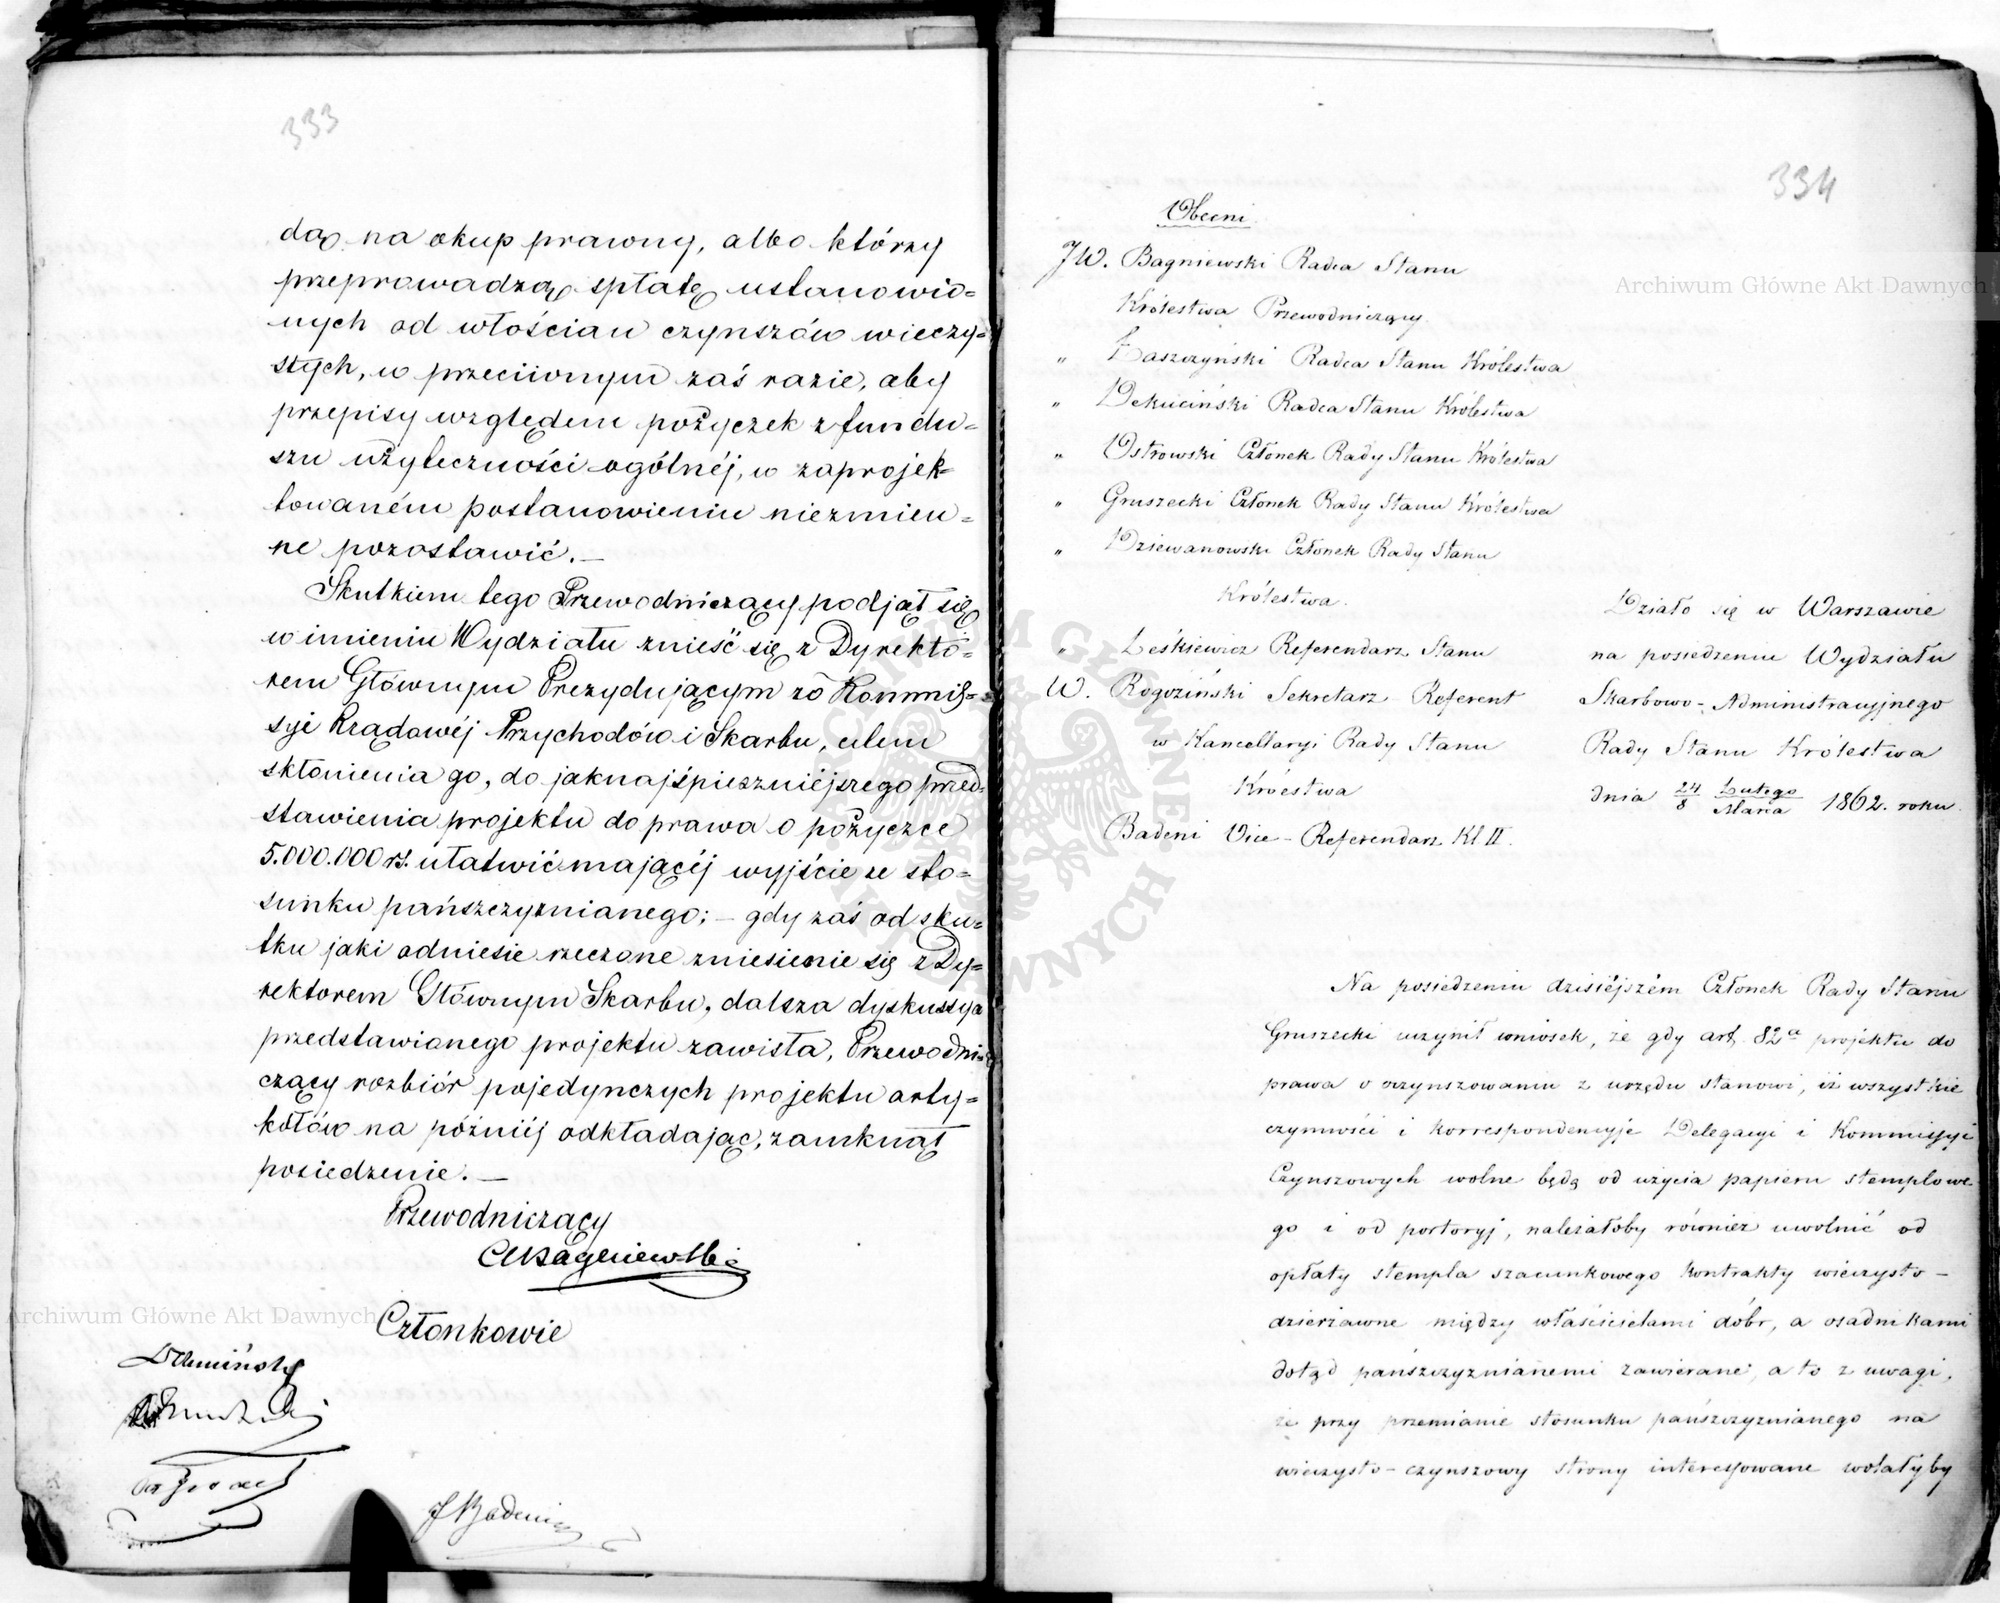 333
dą na okup prawny, albo którzy
przeprowadzą spłatę ustanowio=
nych od włościan czynszów wieczy=
stych, w przeciwnym zaś razie, aby
przepisy względem pożyczek z fundu=
szu użyteczności ogólnéj, w zaprojek=
towaném postanowieniu niezmien=
ne pozostawić.—
Skutkiem tego Przewodniczący podjął się
w imieniu Wydziału znieść się z Dyrekto=
rem Głównym Prezydującym w Kommis=
syi Rządowéj Przychodów i Skarbu, celem
skłonienia go, do jaknajśpieszniéjszego przed=
stawienia projektu do prawa o pożyczce
5.000.000 rs. ułatwić mającéj wyjście ze sto=
sunku pańszczyznianego;— gdy zaś od sku=
tku jaki odniesie rzeczone zniesienie się z Dy=
rektorem Głównym Skarbu, dalsza dyskussya
przedstawionego projektu zawisła, Przewodni=
czący rozbiór pojedynczych projektu arty=
kółów na późniéj odkładając, zamknął
posiedzenie.—
Przewodniczący
Bagniewski
Członkowie
J Badeni
334
Obecni
JW. Bagniewski Radca Stanu
Królestwa Przewodniczący
" Łaszczyński Radca Stanu Królestwa
" Dekuciński Radca Stanu Królestwa
" Ostrowski Członek Rady Stanu Królestwa
" Gruszecki Członek Rady Stanu Królestwa
" Dziewanowski Członek Rady Stanu
Królestwa.
" Leśkiewicz Referendarz Stanu
W. Rogoziński Sekretarz Referent
w Kancellaryi Rady Stanu
Króestwa
Badeni Vice-Referendarz Kl II.
Działo się w Warszawie
na posiedzeniu Wydziału
Skarbowo-Administracyjnego
Rady Stanu Królestwa
dnia 24/8 Lutego/Marca 1862. roku.
Na posiedzeniu dzisiéjszém Członek Rady Stanu
Gruszecki uczynił wniosek, że gdy art. 82a projektu do
prawa o oczynszowaniu z urzędu stanowi, iż wszystkie
czynności i korrespondencyje Delegacyi i Kommissyi
Czynszowych wolne będą od użycia papieru stemplowe
go i od portoryj, należałoby również uwolnić od
opłaty stempla szacunkowego kontrakty wieczysto-
dzierżawne między właścicielami dóbr, a osadnikami
dotąd pańszczyznianemi zawierane, a to z uwagi,
że przy przemianie stosunku pańszczyznianego na
wieczysto-czynszowy strony interessowane wolałyby
Archiwum Główne Akt Dawnych
Archiwum Główne Akt Dawnych
ARCHIWUM GŁÓWNE AKT DAWNYCH